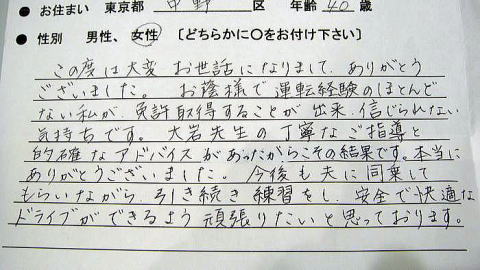 ● お住まい 東京都 中野 区 年齢 40 歳
● 性別 男性、 女性 [どちらかに○をお付け下さい]
この度は大変 お世話になりまして、ありがとう
ございました。 お陰様で運転経験のほとんど
ない私が、免許取得することが 出来、信じられない
気持ちです。大岩先生の丁寧なご指導と
的確なアドバイスがあったからこその結果です。本当に
ありがとうございました。今後も夫に同乗して
もらいながら、引き続き練習をし、安全で快適な
ドライブができるよう 頑張りたいと思っております。